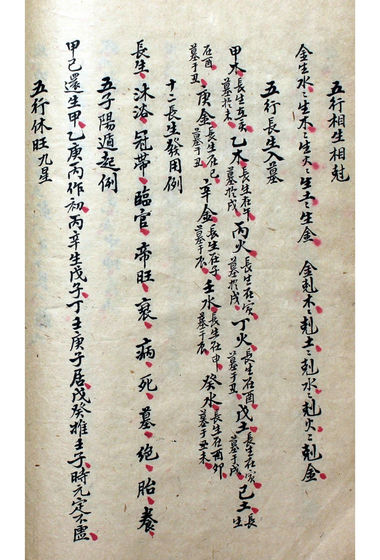 五行相生相尅
金生水〻生木〻生火〻生土〻生金　金剋木〻剋土〻剋水〻剋火〻剋金
五行長生入墓
甲木長生在亥墓於未乙木長生在午墓於戌丙火長生在寅墓於戌丁火長生在酉墓于丑戊土長生在寅墓于戌己土長生
在酉墓于丑庚金長生在巳墓于丑辛金長生在子墓于辰壬水長生在申墓于辰癸水長生在卯墓于未
十二長生發用例
長生沐浴冠帶臨官帝旺衰病死墓絕胎養
五子陽遁起例
甲己還生甲乙庚丙作初丙辛生戊子丁壬庚子居戊癸推壬子時元定不虛
五行休旺九星